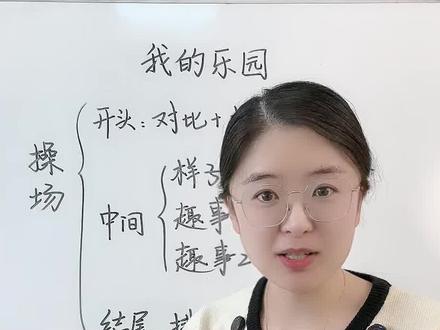 我的乐园
操场
开头：对比+
中间
样子
趣事
趣事2
结尾